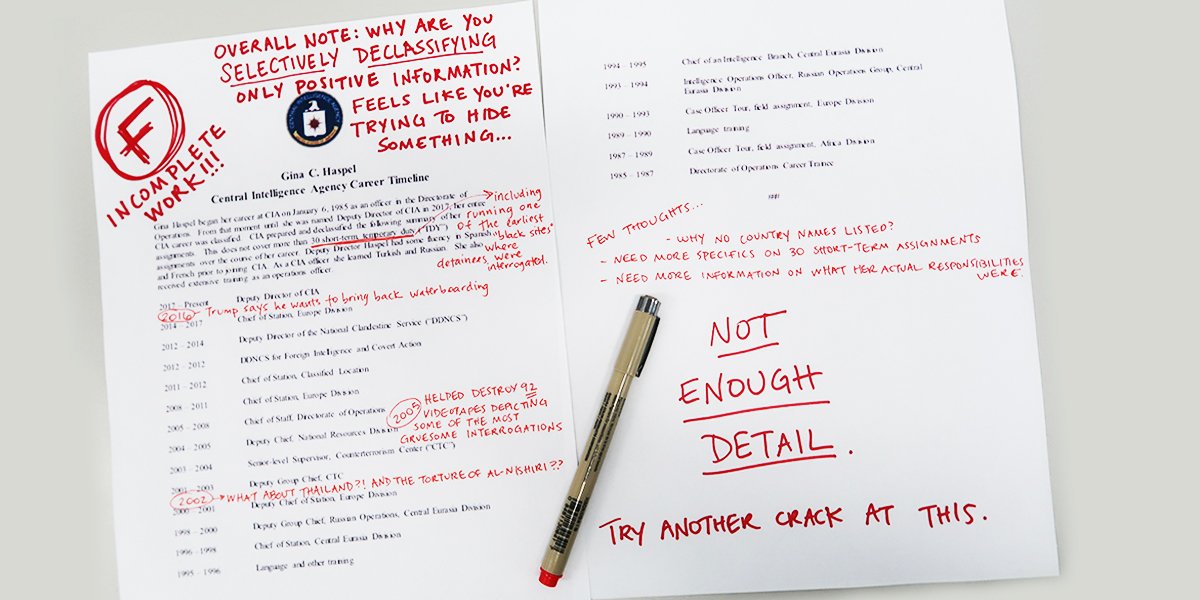 OVERALL NOTE: WHY ARE YOU
SELECTIVELY DECLASSIFYING
ONLY POSITIVE INFORMATION?
FEELS LIKE YOU'RE
TRYING TO HIDE
SOMETHING...
F
INCOMPLETE
WORK!!!
Gina C. Haspel
Central Intelligence Agency Career Timeline
Gina Haspel began her career at CIA on January 6, 1985 as an officer in the Directorate of
Operations. From that moment until she was named Deputy Director of CIA in 2017, her entire
CIA career was classified. CIA prepared and declassified the following summary of her
assignments. This does not cover more than 30 short-term, temporary duty ("TDY")
assignments over the course of her career. Deputy Director Haspel had some fluency in Spanish
and French prior to joining CIA. As a CIA officer she learned Turkish and Russian. She also
received extensive training as an operations officer.
including
running one
of the earliest
"black sites"
where
detainees were
interrogated.
2017 – Present Deputy Director of CIA
2016 - Trump says he wants to bring back waterboarding
2014 – 2017 Chief of Station, Europe Division
2012 – 2014 Deputy Director of the National Clandestine Service ("DDNCS")
2012 – 2012 DDNCS for Foreign Intelligence and Covert Action
2011 – 2012 Chief of Station, Classified Location
2008 – 2011 Chief of Station, Europe Division
2005 – 2008 Chief of Staff, Directorate of Operations
2005 HELPED DESTROY 92
VIDEOTAPES DEPICTING
SOME OF THE MOST
GRUESOME INTERROGATIONS
2004 – 2005 Deputy Chief, National Resources Division
2003 – 2004 Senior-level Supervisor, Counterterrorism Center ("CTC")
2001 – 2003 Deputy Group Chief, CTC
2002 → WHAT ABOUT THAILAND?! AND THE TORTURE OF AL-NISHIRI??
2000 – 2001 Deputy Chief of Station, Europe Division
1998 – 2000 Deputy Group Chief, Russian Operations, Central Eurasia Division
1996 – 1998 Chief of Station, Central Eurasia Division
1995 – 1996 Language and other training
1994 – 1995 Chief of an Intelligence Branch, Central Eurasia Division
1993 – 1994 Intelligence Operations Officer, Russian Operations Group, Central
Eurasia Division
1990 – 1993 Case Officer Tour, field assignment, Europe Division
1989 – 1990 Language training
1987 – 1989 Case Officer Tour, field assignment, Africa Division
1985 – 1987 Directorate of Operations Career Trainee
###
FEW THOUGHTS...
- WHY NO COUNTRY NAMES LISTED?
- NEED MORE SPECIFICS ON 30 SHORT-TERM ASSIGNMENTS
- NEED MORE INFORMATION ON WHAT HER ACTUAL RESPONSIBILITIES
WERE.
NOT
ENOUGH
DETAIL.
TRY ANOTHER CRACK AT THIS.